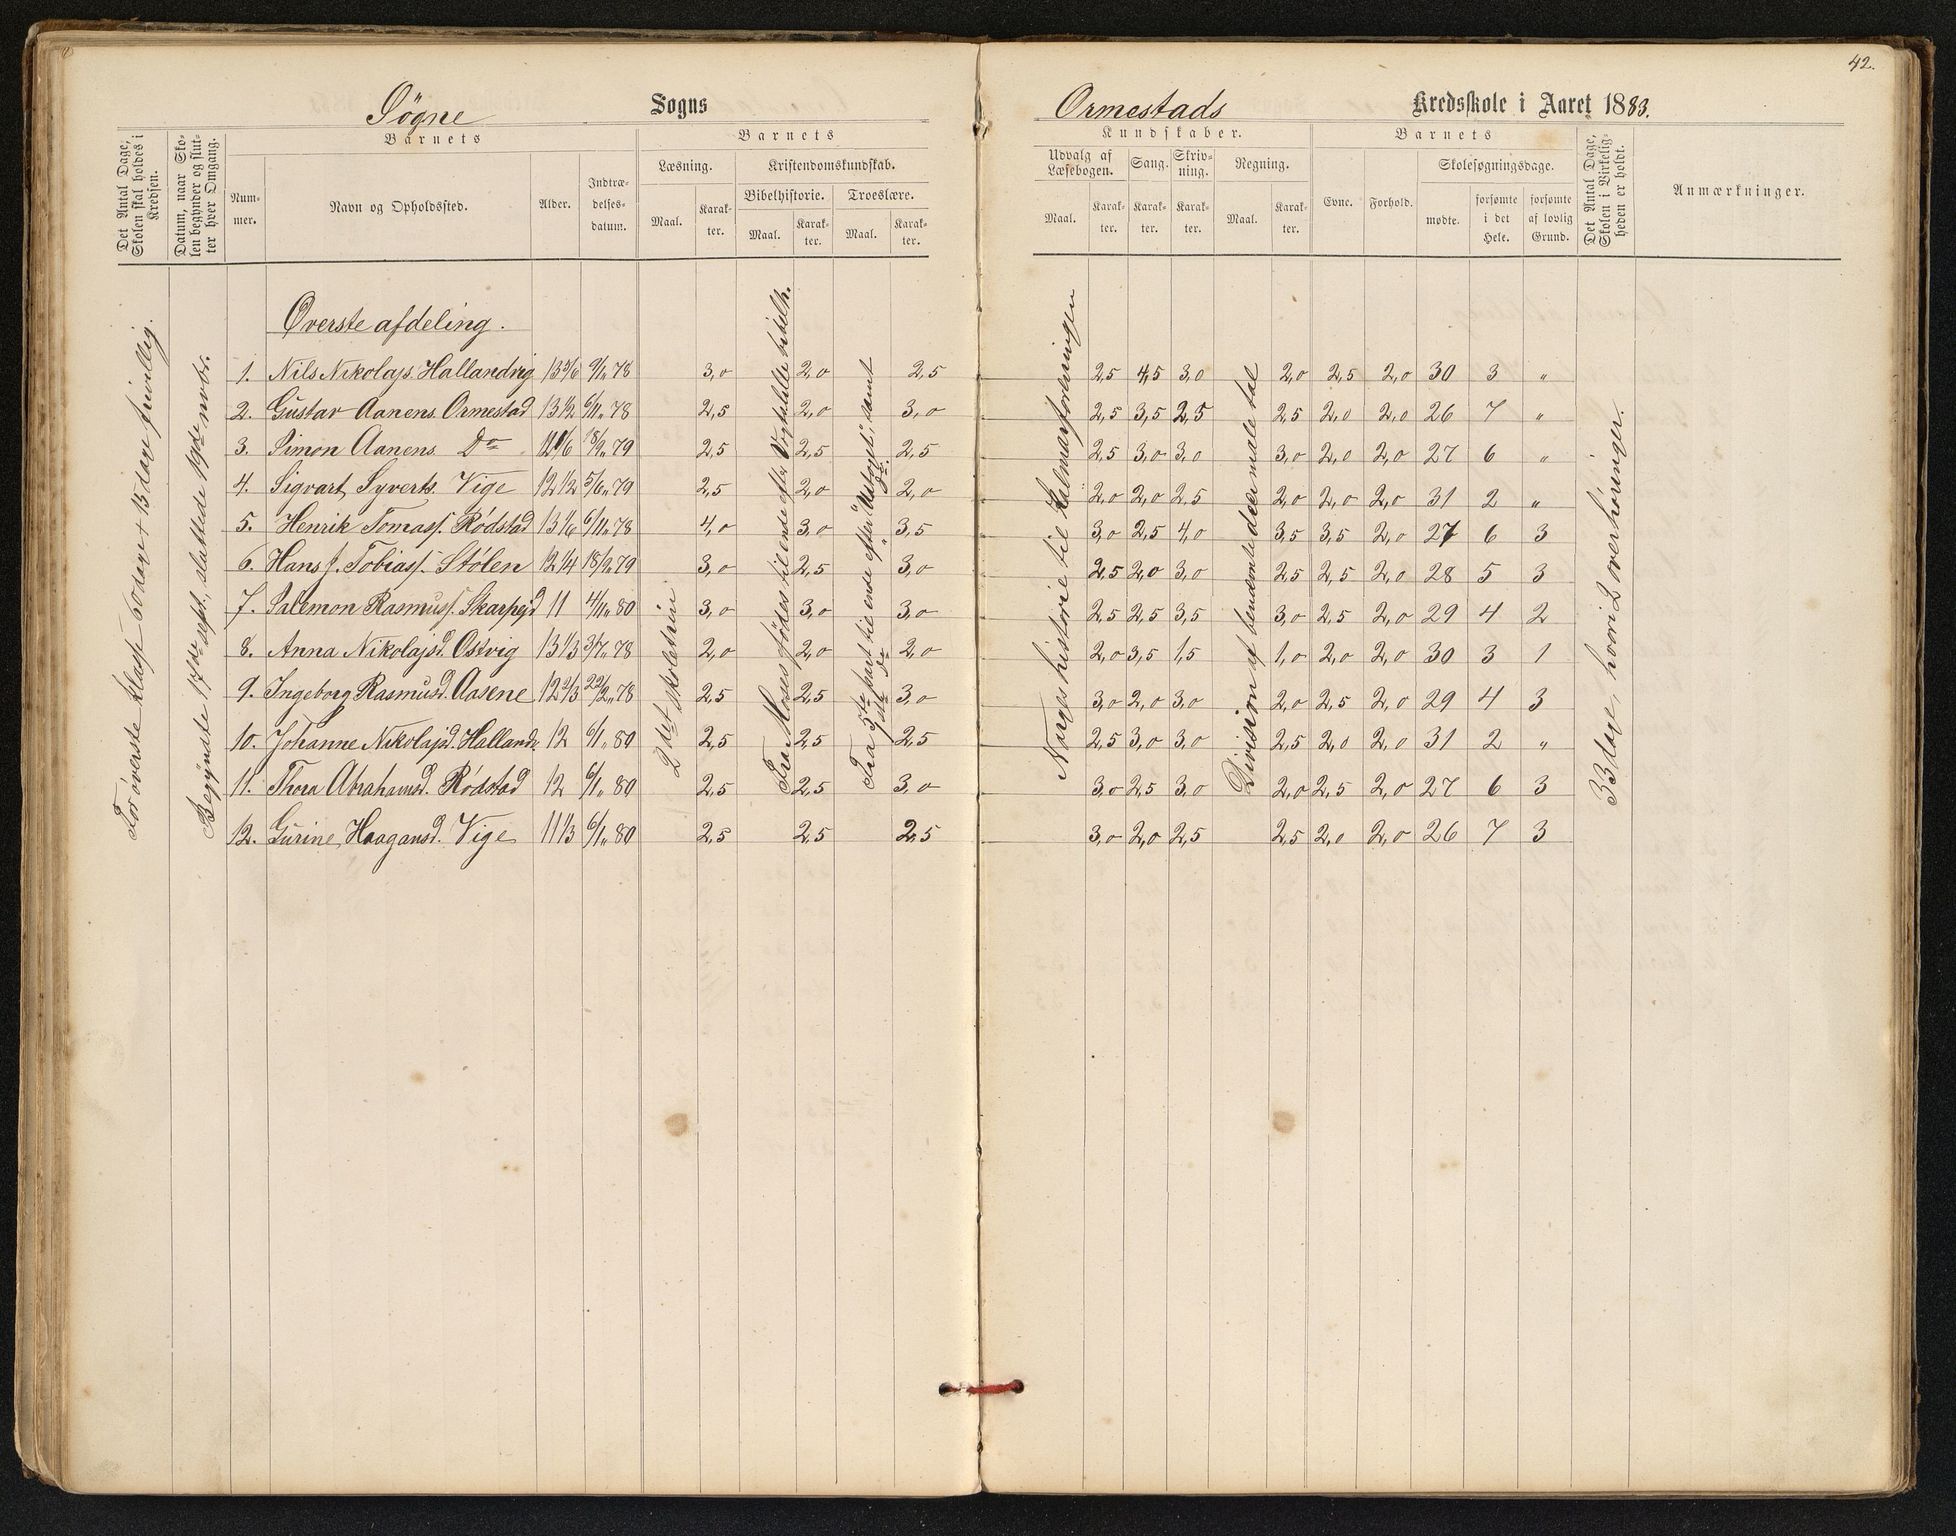 42.
Søgne Sogns
Ormestads Kredsskole i Aaret 1883.
Det Antal Dage, Skolen skal holdes i Kredsen.
Datum, naar Skolen begynder og slutter hver Omgang.
Barnets
Nummer.
Navn og Opholdssted.
Alder.
Indtrædelsesdatum.
Barnets
Læsning.
Maal.
Karakter.
Kristendomskundskab.
Bibelhistorie.
Maal.
Karakter.
Troeslære.
Maal.
Karakter.
Kundskaber.
Udvalg af Læsebogen.
Maal.
Karakter.
Sang.
Karakter.
Skrivning.
Karakter.
Regning.
Maal.
Karakter.
Barnets
Evne.
Forhold.
Skolesøgningsdage.
mødte.
forsømte i det Hele.
forsømte af lovlig Grund.
Det Antal Dage, Skolen i Virkeligheden er holdt.
Anmærkninger.
For øverste klasse 60 dage + 15 dage frivillig.
Begyndte 17de sept., sluttede 19de novbr.
2det skoletrin
Fra Moses fødes til ende efter Vogts lille bibelh.
Fra 3die part til ende efter "Udtoget" samt
Norges historie til Kalmarforeningen
Division af benævnte decimale tal
33 dage, hvori 2 overhøringer.
Øverste afdeling.
1. Nils Nikolajs. Hallandvig 13 5/6 9/1 78 3,0 2,0 2,5 2,5 4,5 3,0 2,0 2,5 2,0 30 3 "
2. Gustav Aanens. Ormestad 13 1/2 6/11 78 2,5 2,0 3,0 2,5 3,5 2,5 2,5 2,0 2,0 26 7 "
3. Simon Aanens. Do 18/9 79 2,5 2,5 2,5 2,5 3,0 3,0 3,0 2,0 2,0 27 6 "
4. Sigvart Syverts. Vige 12 1/2 5/6 79 2,5 2,0 2,0 2,0 2,0 2,5 2,0 2,0 2,0 31 2 "
5. Henrik Tomass. Rødstad 13 1/6 6/11 78 4,0 3,0 3,5 3,0 2,5 4,0 3,5 3,5 2,0 27 6 3
6. Hans J. Tobiass. Stølen 12 1/4 18/9 79 3,0 2,5 3,0 2,5 2,0 3,0 2,5 2,5 2,0 28 5 3
7. Salemon Rasmuss. Skarpejd 11 4/11 80 3,0 3,0 3,0 2,5 2,5 3,5 3,0 2,5 2,0 29 4 2
8. Anna Nikolajsd. Østvig 13 1/3 3/7 78 2,0 2,0 2,0 2,0 3,5 1,5 1,0 2,0 2,0 30 3 1
9. Ingeborg Rasmusd. Aasene 12 2/3 22/2 78 2,5 2,5 3,0 3,0 2,0 3,0 2,0 2,5 2,0 29 4 3
10. Johanne Nikolajsd. Hallandv. 12 6/1 80 2,5 2,5 2,5 2,5 3,0 3,0 2,5 2,0 2,0 31 2 "
11. Thora Abrahamsd. Rødstad 12 6/1 80 2,5 2,5 3,0 3,0 2,5 3,0 2,0 2,5 2,0 27 6 3
12. Gurine Haagansd. Vige 11 1/3 6/1 80 2,5 2,5 2,5 3,0 2,0 2,5 2,5 2,0 2,0 26 7 3